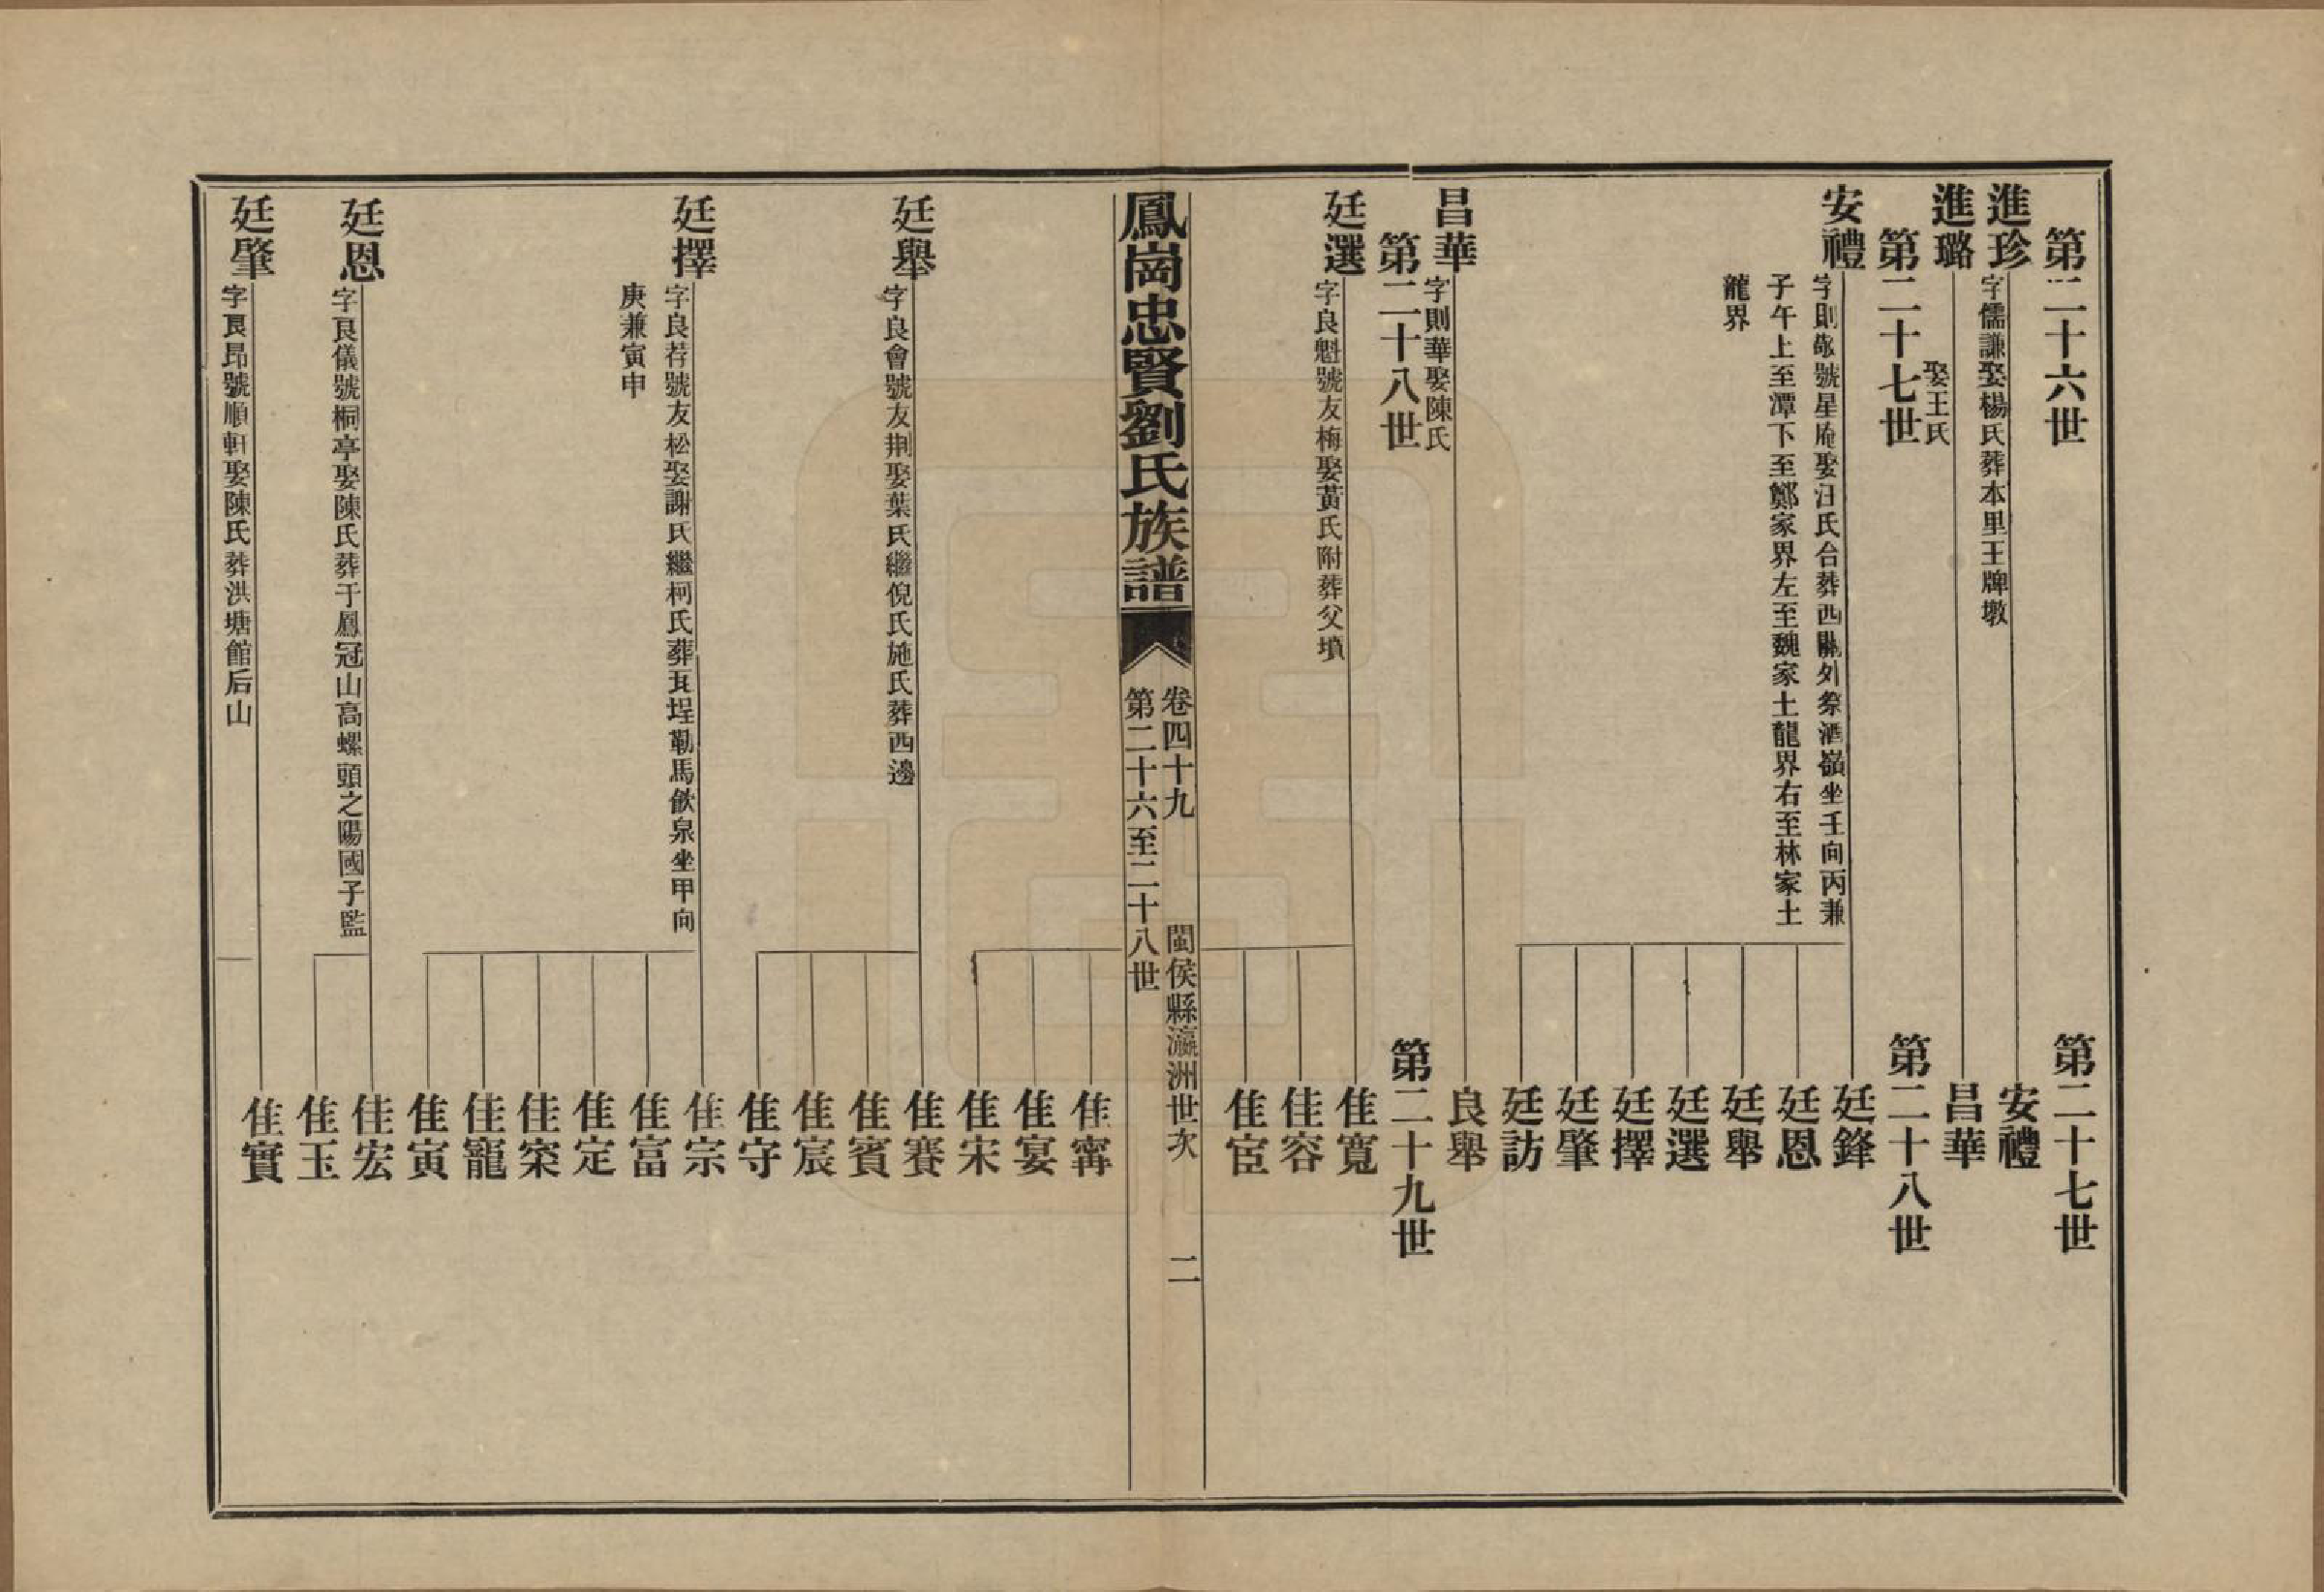 第二十六世
第二十七世
進珍
字儒謙娶楊氏葬本里王牌墩
安禮
進璐
娶王氏
昌華
第二十七世
第二十八世
安禮
字則敬號星庵娶汪氏合葬西關外祭酒嶺坐壬向丙兼
子午上至潭下至鄭家界左至魏家土龍界右至林家土
龍界
廷鋒
廷恩
廷舉
廷選
廷擇
廷肇
廷訪
昌華
字則華娶陳氏
良舉
第二十八世
第二十九世
廷選
字良魁號友梅娶黃氏附葬父墳
佳寬
佳容
佳宦
鳳崗忠賢劉氏族譜
卷四十九 閩侯縣瀛洲世次 二
第二十六至二十八世
佳甯
佳宴
佳宋
廷舉
字良會號友荆娶葉氏繼倪氏施氏葬西邊
佳賽
佳賓
佳宸
佳守
廷擇
字良荐號友松娶謝氏繼柯氏葬瓦埕勒馬飲泉坐甲向
庚兼寅申
佳宗
佳富
佳定
佳寀
佳寵
佳寅
廷恩
字良儀號桐亭娶陳氏葬于鳳冠山高螺頭之陽國子監
佳宏
佳玉
廷肇
字良昂號順軒娶陳氏葬洪塘館后山
佳實